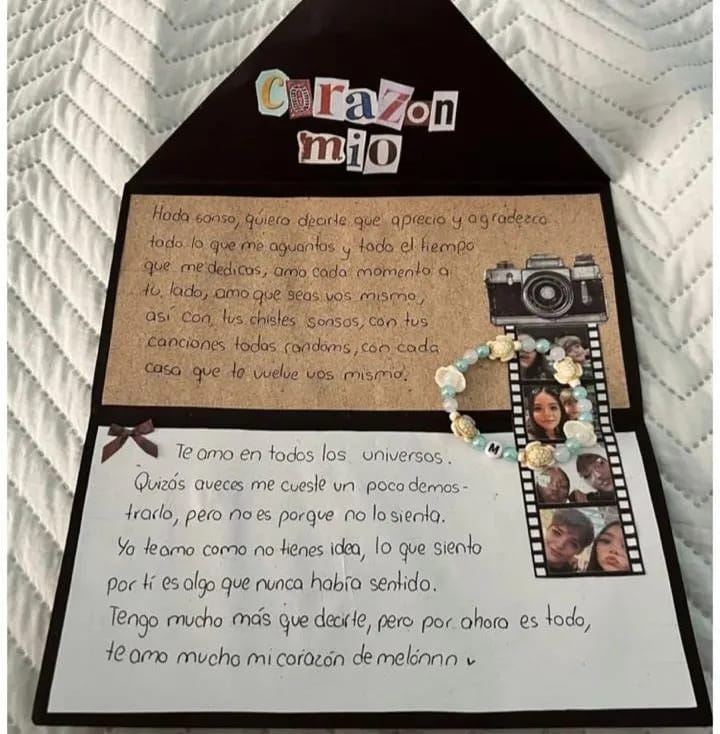 corazon
mio
Hoda sonso, quiero decirte que aprecio y agradezco
todo lo que me aguantas y todo el tiempo
que me dedicas, amo cada momento a
tu lado, amo que seas vos mismo,
así con tus chistes sonsos, con tus
canciones todas randoms, con cada
cosa que te vuelve vos mismo.
Te amo en todos los universos.
Quizás aveces me cueste un poco demos-
trarlo, pero no es porque no lo sienta.
Yo te amo como no tienes idea, lo que siento
por tí es algo que nunca había sentido.
Tengo mucho más que decirte, pero por ahora es todo,
te amo mucho mi corazón de melónnn
M